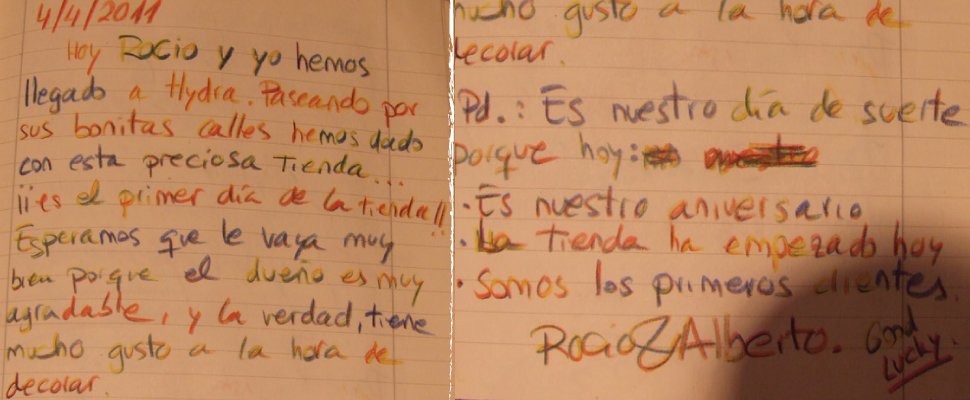 4/4/2011
Hoy Rocio y yo hemos
llegado a Hydra. Paseando por
sus bonitas calles hemos dado
con esta preciosa tienda...
¡¡es el primer día de la tienda!!
Esperamos que le vaya muy
bien porque el dueño es muy
agradable, y la verdad, tiene
mucho gusto a la hora de
decorar.
mucho gusto a la hora de
decorar.
Pd.: Es nuestro día de suerte
porque hoy:
· Es nuestro aniversario
· La tienda ha empezado hoy
· Somos los primeros clientes.
Rocio & Alberto. Good
Lucky.